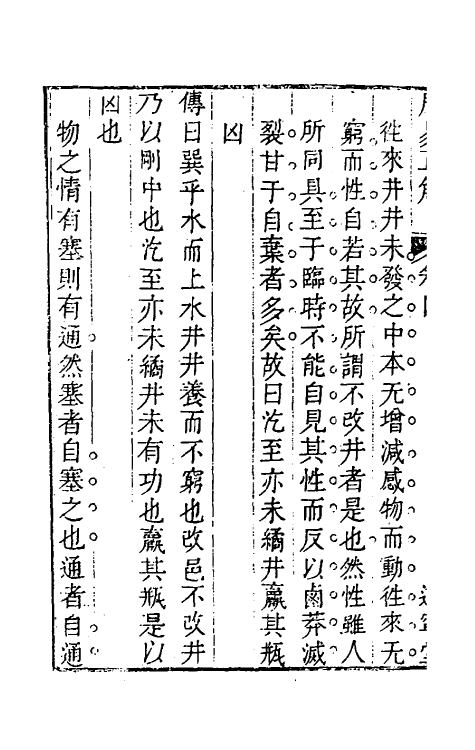 徃來井井未發之中本无增減感物而動徃來无
窮而性自若其故所謂不改井者是也然性雖人
所同具至于臨時不能自見其性而反以鹵莽滅
裂甘于自棄者多矣故曰汔至亦未繘井羸其瓶
凶
傳曰巽乎水而上水井井養而不窮也改邑不改井
乃以剛中也汔至亦未繘井未有功也羸其瓶是以
凶也
物之情有塞則有通然塞者自塞之也通者自通